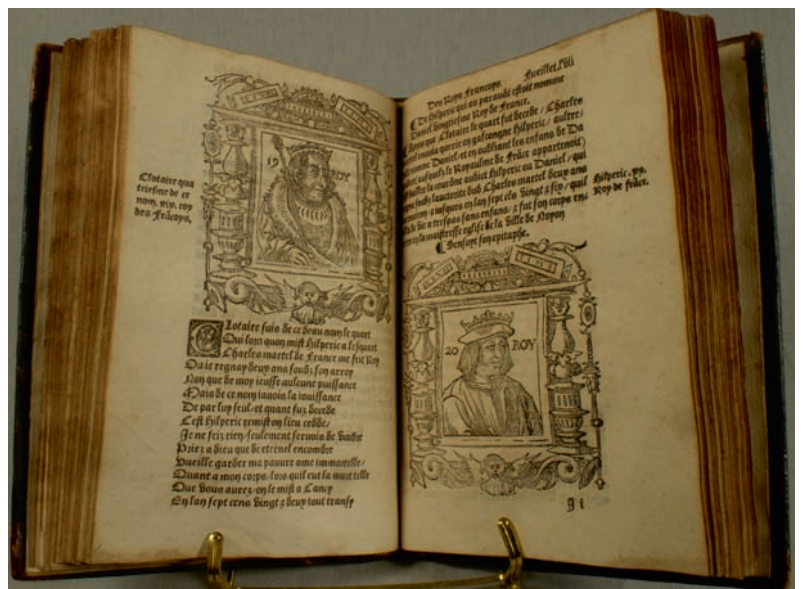 Clotaire qua
triesme de ce
nom, xix. roy
des Frãcoys.
19 ROY
Clotaire suis de ce beau nom le quart
Qui lors quon mist Hilperic a lesquart
Charles martel de France me feit Roy
Ou ie regnay deux ans soubz son arroy
Non que de moy ieusse aulcune puissance
Mais de ce nom iauois la iouissance
De par luy seul, et quant fuz decede
Cest Hilperic remist on lieu cedde,
Je ne feiz rien, seulement seruoie de
Priez a dieu que de eternel encombre
Vueille garder ma pauure ame immortelle,
Quant a mon corps, lors quil eut la mort telle
Que vous aurez, on le mist a Cancy
En lan sept cens vingt & deux tout transy
Des Roys Francoys Fueillet.lvii
De Hilperic qui au parauãt estoit nomme
Daniel vingtiesme Roy de France.
Apres que Clotaire le quart fut decede, Charles
enuoia querir en gascongne Hilperic, aultre-
nomme Daniel, et en oubliant les enfans de Da
ausquelz le Royaulme de Frãce appartenoit,
la courõne audict Hilperic ou Daniel, qui
soubz lauctorite dud Charles martel deux ans
& iusques en lan sept cẽs vingt & six, quil
de vie a trespas sans enfans, & fut son corps en
en la maistresse eglise de la ville de Noyon
Sensuyt son epitaphe.
Hilperic, xx.
Roy de frãce.
20 ROY